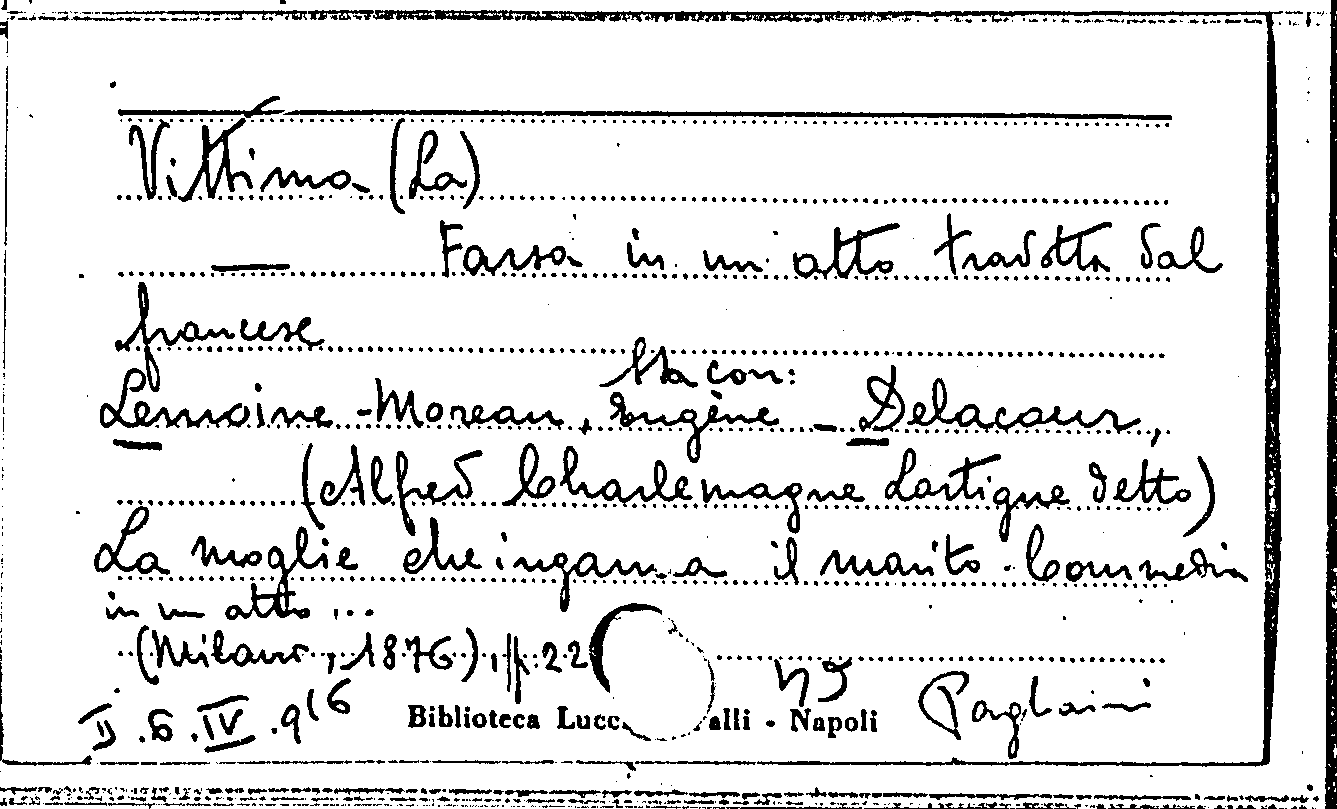 Vittima (La)
— Farsa in un atto tradotta dal
francese
Sta con:
Lemoine-Moreau, Eugène - Delacour,
(Alfred Charlemagne Lartigue detto)
La moglie che inganna il marito. Commedia
in un atto ...
(Milano, 1876), pp. 22
II.6.IV.9 16
Biblioteca Lucc alli - Napoli
Pagliaini